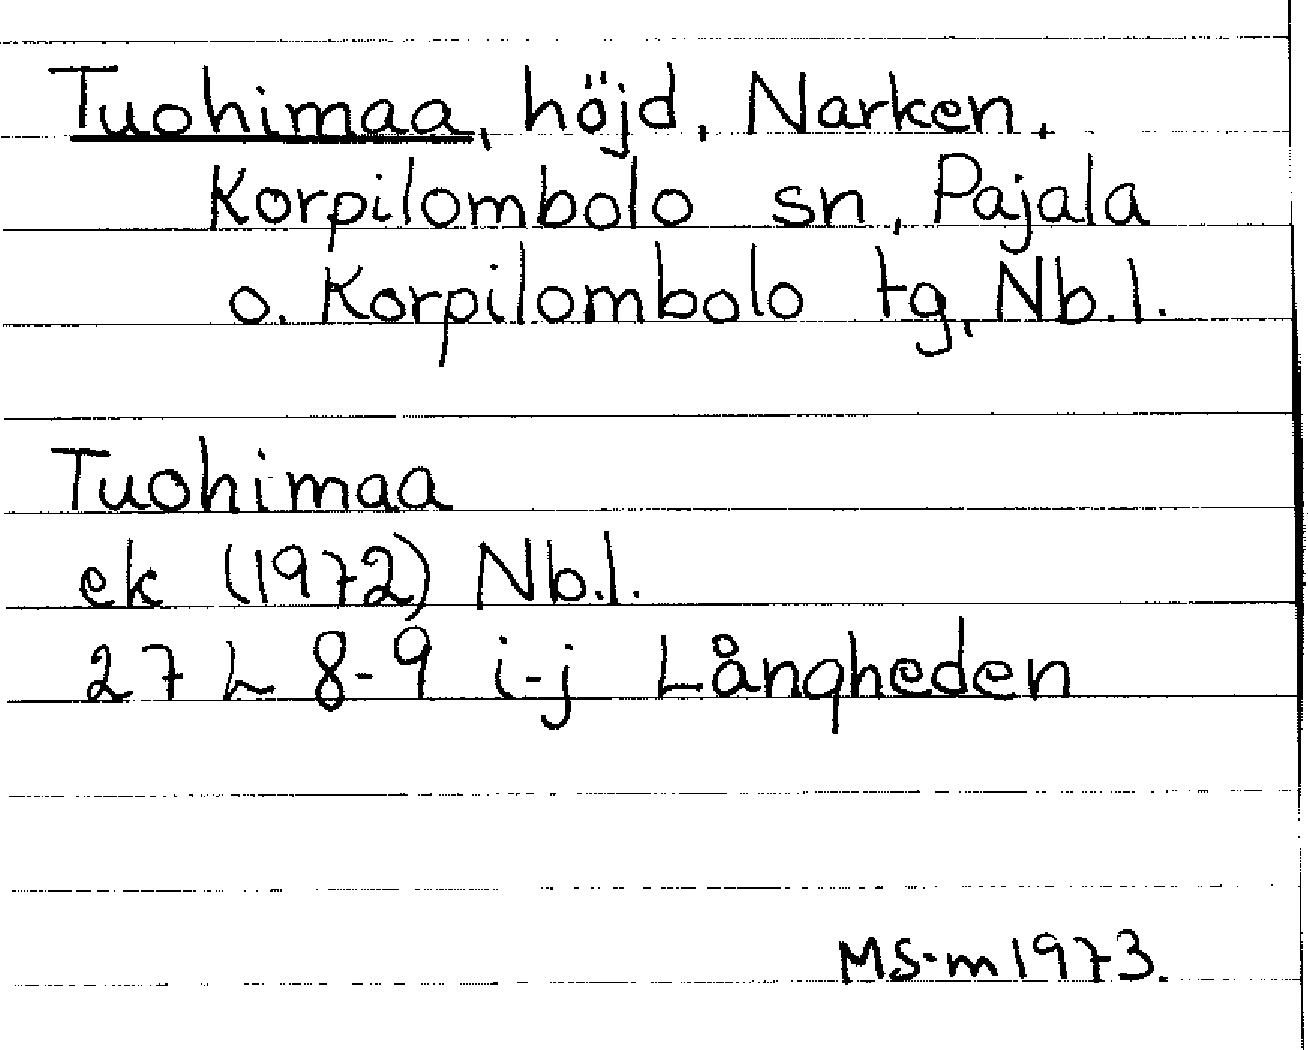 Tuohimaa, höjd, Narken,
Korpilombolo sn, Pajala
o. Korpilombolo tg, Nb.l.
Tuohimaa
ek (1972) Nb.l.
27 L 8-9 i-j Långheden
MS-m 1973.